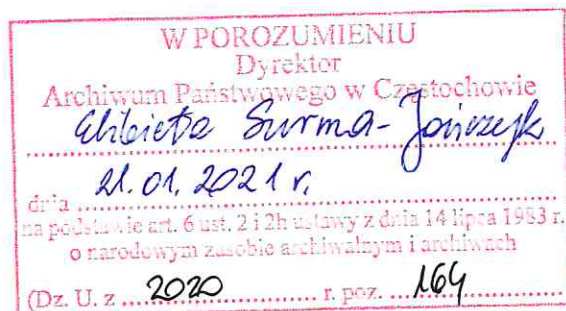 W POROZUMIENIU
Dyrektor
Archiwum Państwowego w Częstochowie
Elżbieta Surma-Jończyk
dnia 21.01.2021 r.
na podstawie art. 6 ust. 2 i 2h ustawy z dnia 14 lipca 1983 r.
o narodowym zasobie archiwalnym i archiwach
(Dz. U. z 2020 r. poz. 164